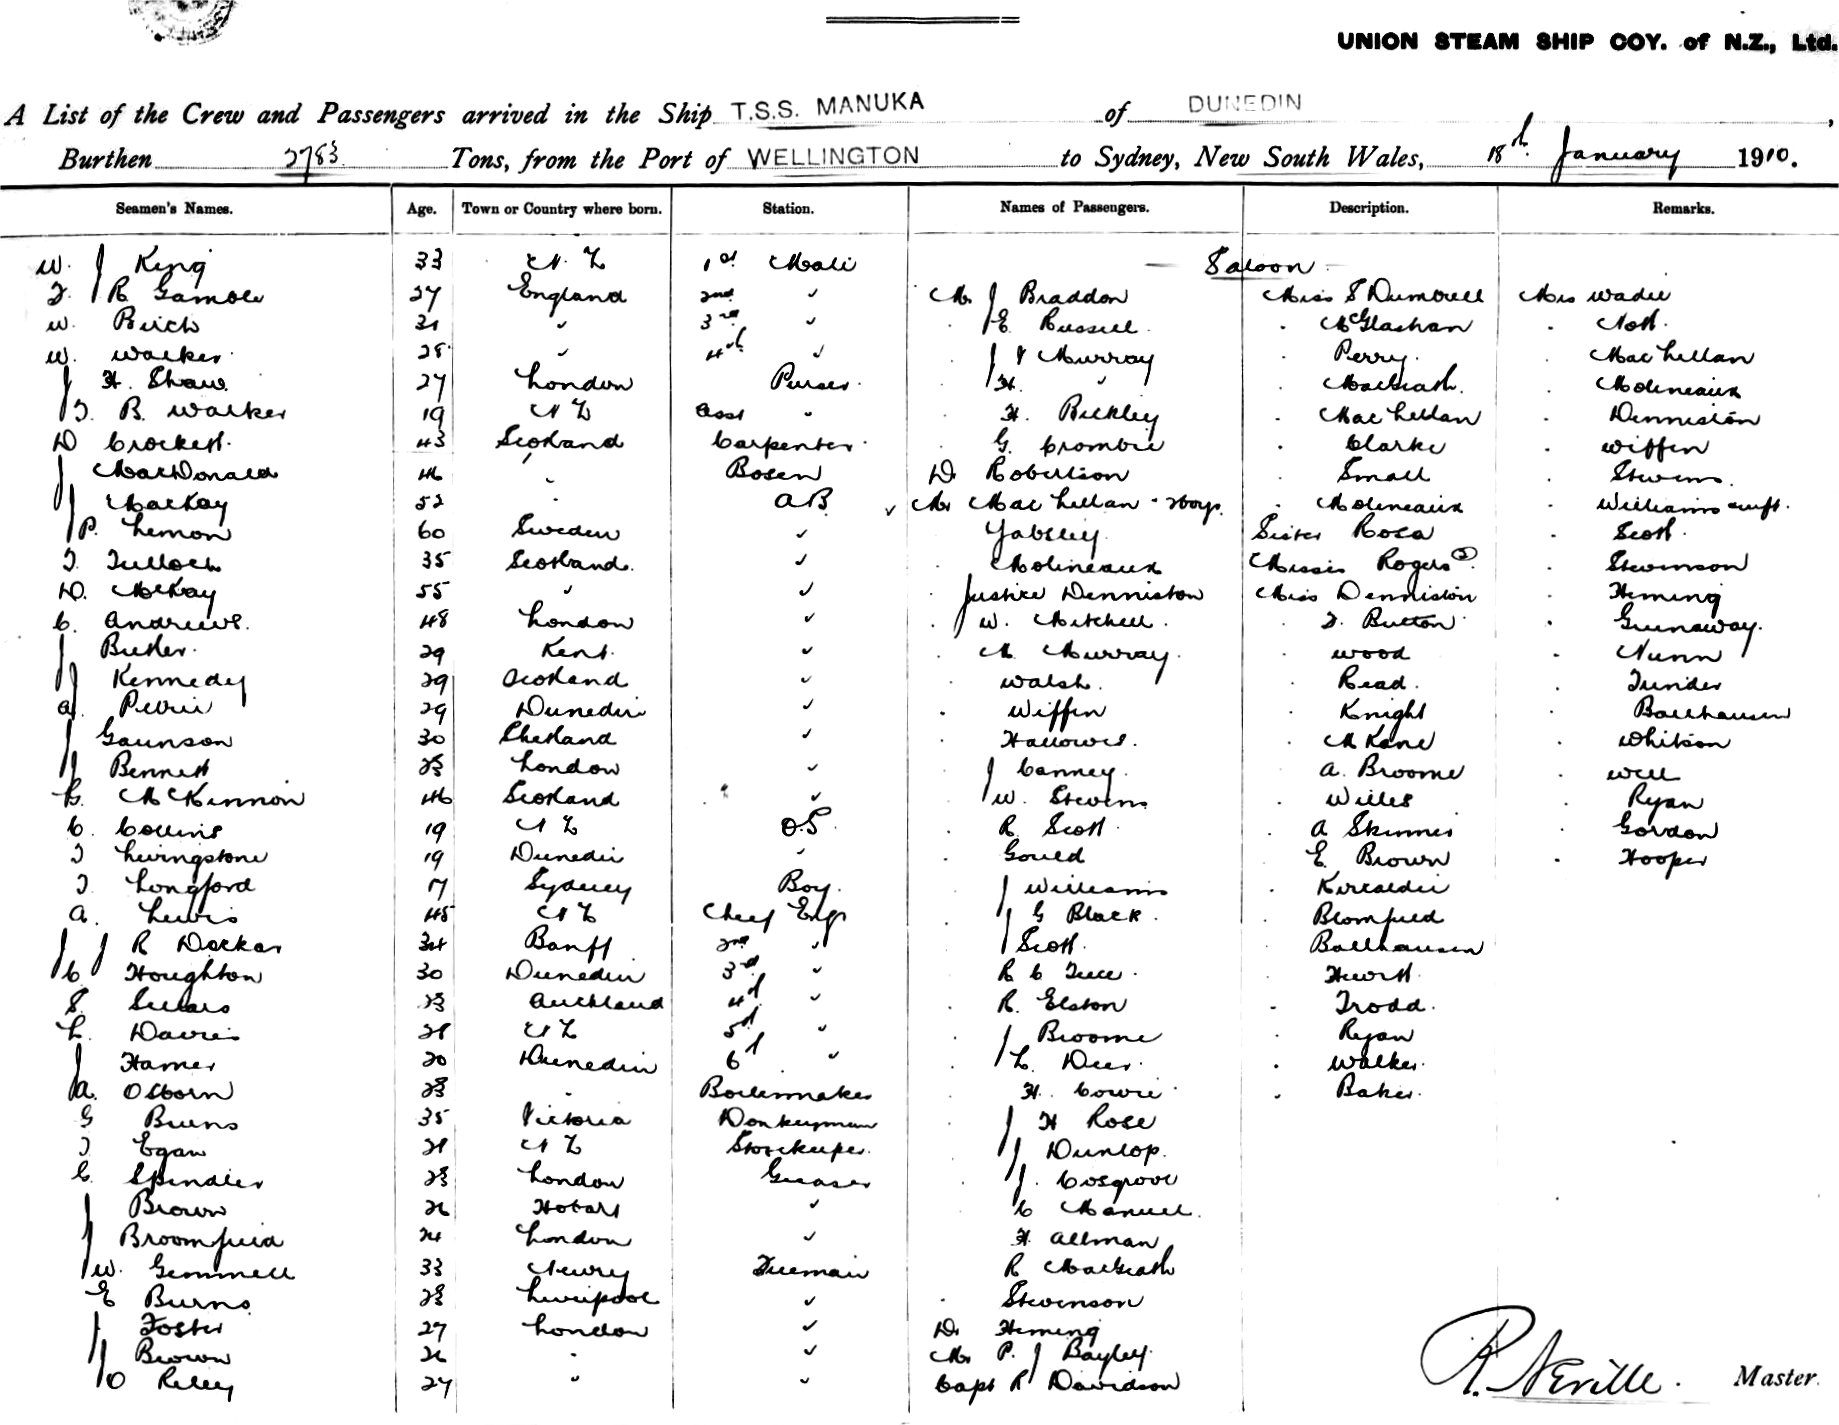 UNION STEAM SHIP COY. of N.Z., Ltd.
A List of the Crew and Passengers arrived in the Ship T.S.S. MANUKA of DUNEDIN,
Burthen 2783 Tons, from the Port of WELLINGTON to Sydney, New South Wales, 18th January 1910.
Seamen's Names. Age. Town or Country where born. Station. Names of Passengers. Description. Remarks.
W. J King 33 N. Z 1st Mate Saloon
F. J R Gamble 27 England 2nd " Mr J Braddon Miss S Dumbrell Mrs Wadie
W. Birch 31 " 3rd " " E. Russell " McGlashan " Nott
W. Walker 28 " 4th " " J V Murray " Perry " MacLellan
J H. Shaw 27 London Purser " H. " " MacGrath " Molineaux
J. B. Walker 19 N Z Asst " H. Bickley " MacLellan " Denniston
D Crockett 43 Scotland Carpenter G. Crombie " Clarke " Wiffin
J MacDonald 46 " Bosen Dr Robertson " Small " Stevens
J Mackay 52 " AB Mr MacLellan " Molineaux " Williams
J P. Lemon 60 Sweden " Yabsley Sister Rosa " Scott
T. Tulloch 35 Scotland " Molineaux Misses Rogers (2) " Stevenson
D. McKay 55 " " Justice Denniston Miss Denniston " Fleming
C. Andrews 48 London " " J W. Mitchell " F. Button " Greenaway
J Butler 29 Kent " " M Murray " Wood " Nunn
J Kennedy 29 Scotland " " Walsh " Read " Tunder
A. Petrie 29 Dunedin " " Wiffin " Knight " Ballhausen
J Gaunson 30 Shetland " " Hallowes " McKane " Whitson
J Bennett 23 London " " J Canney " A. Broome " Well
McKinnon 46 Scotland " " W. Stevens " Willes " Ryan
C. Collins 19 N Z O.S. " R Scott " A Skinner " Gordon
T Livingstone 19 Dunedin " " Gould " E Brown " Hooper
T. Longford 17 Sydney Boy " J Williams " Kircaldie
A. Lewis 45 N Z Chief Engr " J G Black " Blomfield
J J R Dockar 34 Banff 2nd " " J Scott " Ballhausen
C. Houghton 30 Dunedin 3rd " " R C " Hewitt
S. Sellars 23 Auckland 4th " " R. Elston " Trodd
L. Davies 28 N Z 5th " " J Broome " Ryan
J Hamer 20 Dunedin 6th " " L. Deer " Walker
A. Osborn 23 " Boilermaker " H. Cowie " Baker
G Burns 35 Victoria Donkeyman " J H Rose
T Egan 21 N Z Storekeeper " J Dunlop
C. Spindler 23 London Greaser " J. Cosgrove
J Brown 26 Hobart " " C Manuel
J Broomfield 24 London " " H Allman
J W. Gemmell 33 Newry Fireman " R MacGrath
E Burns 23 Liverpool " " Stevenson
J Foster 27 London " Dr Fleming
J Brown 26 " " Mr P. J Bayley
J O Reiley 27 " " Capt R Davidson
R. Neville. Master.